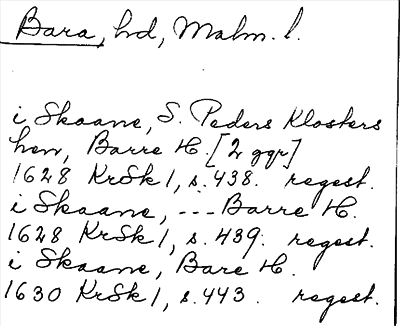 Bara, hd, Malm. l.
i Skaane, S. Peders Klosters
hen, Barre H. [2 ggr]
1628 KrSk 1, s. 438. regest.
i Skaane, --- Barre H.
1628 KrSk 1, s. 439. regest.
i Skaane, Bare H.
1630 KrSk 1, s. 443. regest.